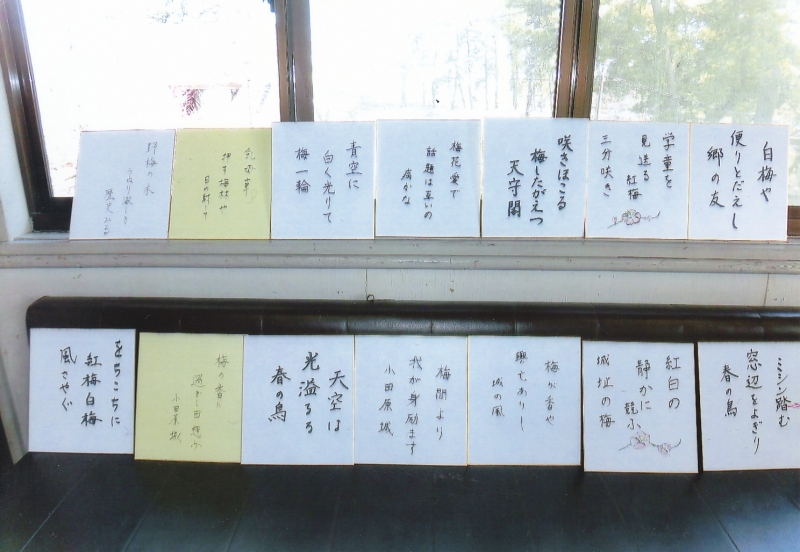 白梅や
便りとだえし
郷の友
学童を
見送る紅梅
三分咲き
咲きほこる
梅したがえつ
天守閣
梅花愛で
話題は互いの
青空に
白く光りて
梅一輪
乳母車
押す梅林や
ミシン踏む
窓辺をよぎり
春の鳥
紅白の
静かに競ふ
城址の梅
梅が香や
興もありし
城の風
梅開より
我が身励ます
小田原城
天空は
光溢るる
春の鳥
梅の香に
小田原城
をちこちに
紅梅白梅
風さやぐ